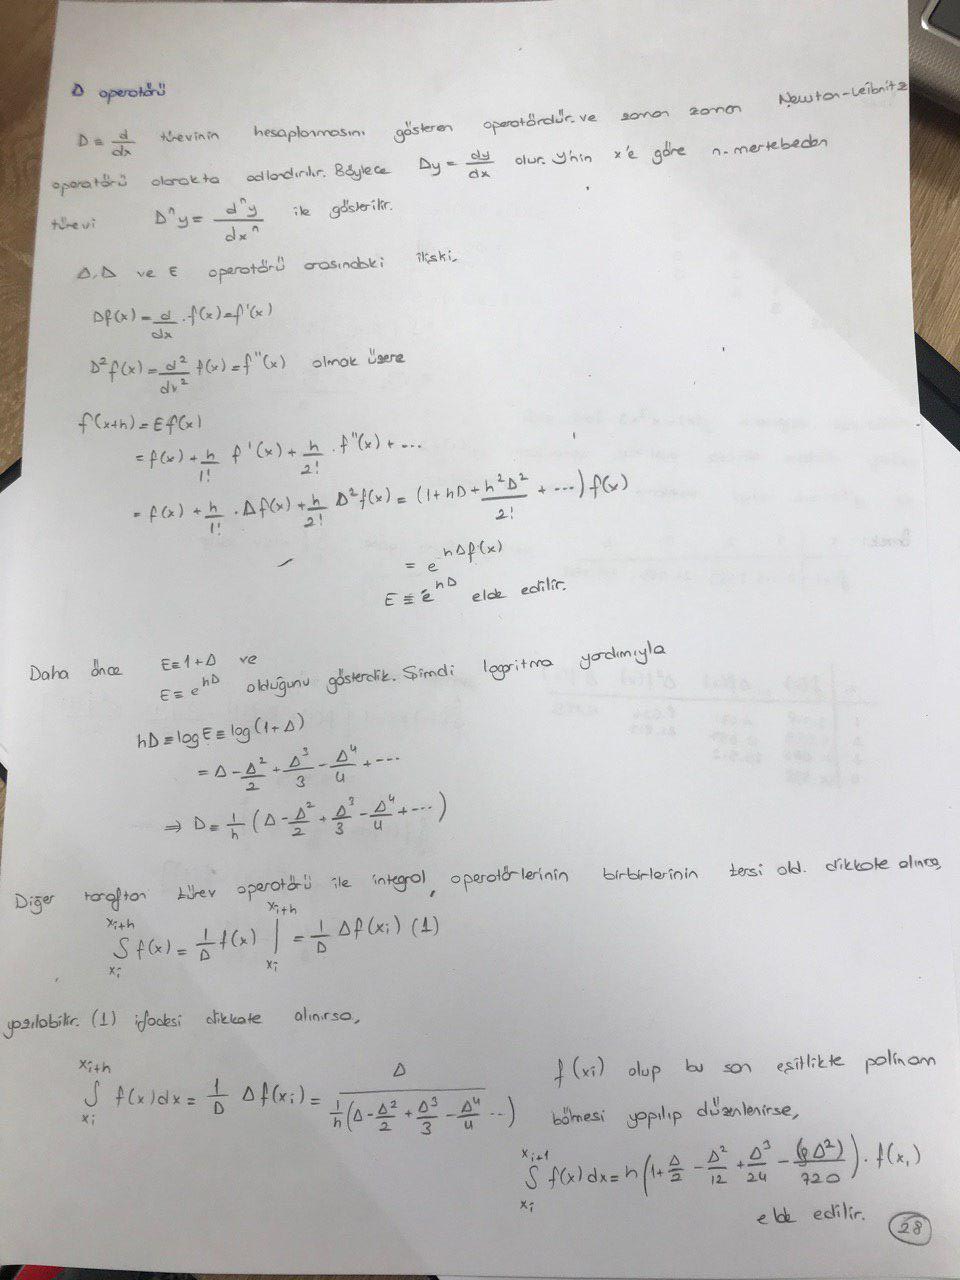 Δ operatörü
D ≡ d/dx türevinin hesaplanmasını gösteren operatördür. ve zaman zaman Newton-Leibnitz
operatörü olarakta adlandırılır. Böylece Dy = dy/dx olur. y'nin x'e göre n-mertebeden
türevi D^n y = d^n y/dx^n ile gösterilir.
Δ, D ve E operatörü arasındaki ilişki.
Df(x) = d/dx . f(x) = f'(x)
D²f(x) = d²/dx² f(x) = f''(x) olmak üzere
f(x+h) = Ef(x)
= f(x) + h/1! f'(x) + h/2! . f''(x) + ...
= f(x) + h/1! . Δf(x) + h/2! D²f(x) = (1 + hD + h²D²/2! + ...) f(x)
= e^{hDf(x)}
E ≡ e^{hD} elde edilir.
Daha önce E ≡ 1+Δ ve
E ≡ e^{hD} olduğunu gösterdik. Şimdi logaritma yardımıyla
hD ≡ logE ≡ log(1+Δ)
= Δ - Δ²/2 + Δ³/3 - Δ⁴/4 + ...
⇒ D ≡ 1/h (Δ - Δ²/2 + Δ³/3 - Δ⁴/4 + ...)
Diğer taraftan türev operatörü ile integral, operatörlerinin birbirlerinin tersi old. dikkate alınca,
∫_{xi}^{xi+h} f(x) = 1/D f(x) |_{xi}^{xi+h} = 1/D Δf(xi) (1)
yazılabilir. (1) ifadesi dikkate alınırsa,
∫_{xi}^{xi+h} f(x)dx = 1/D Δf(xi) = Δ / (1/h (Δ - Δ²/2 + Δ³/3 - Δ⁴/4 ...)) f(xi) olup bu son eşitlikte polinom
bölmesi yapılıp düzenlenirse,
∫_{xi}^{xi+1} f(x)dx = h(1 + Δ/2 - Δ²/12 + Δ³/24 - Δ²)/720) . f(xi)
elde edilir.
28